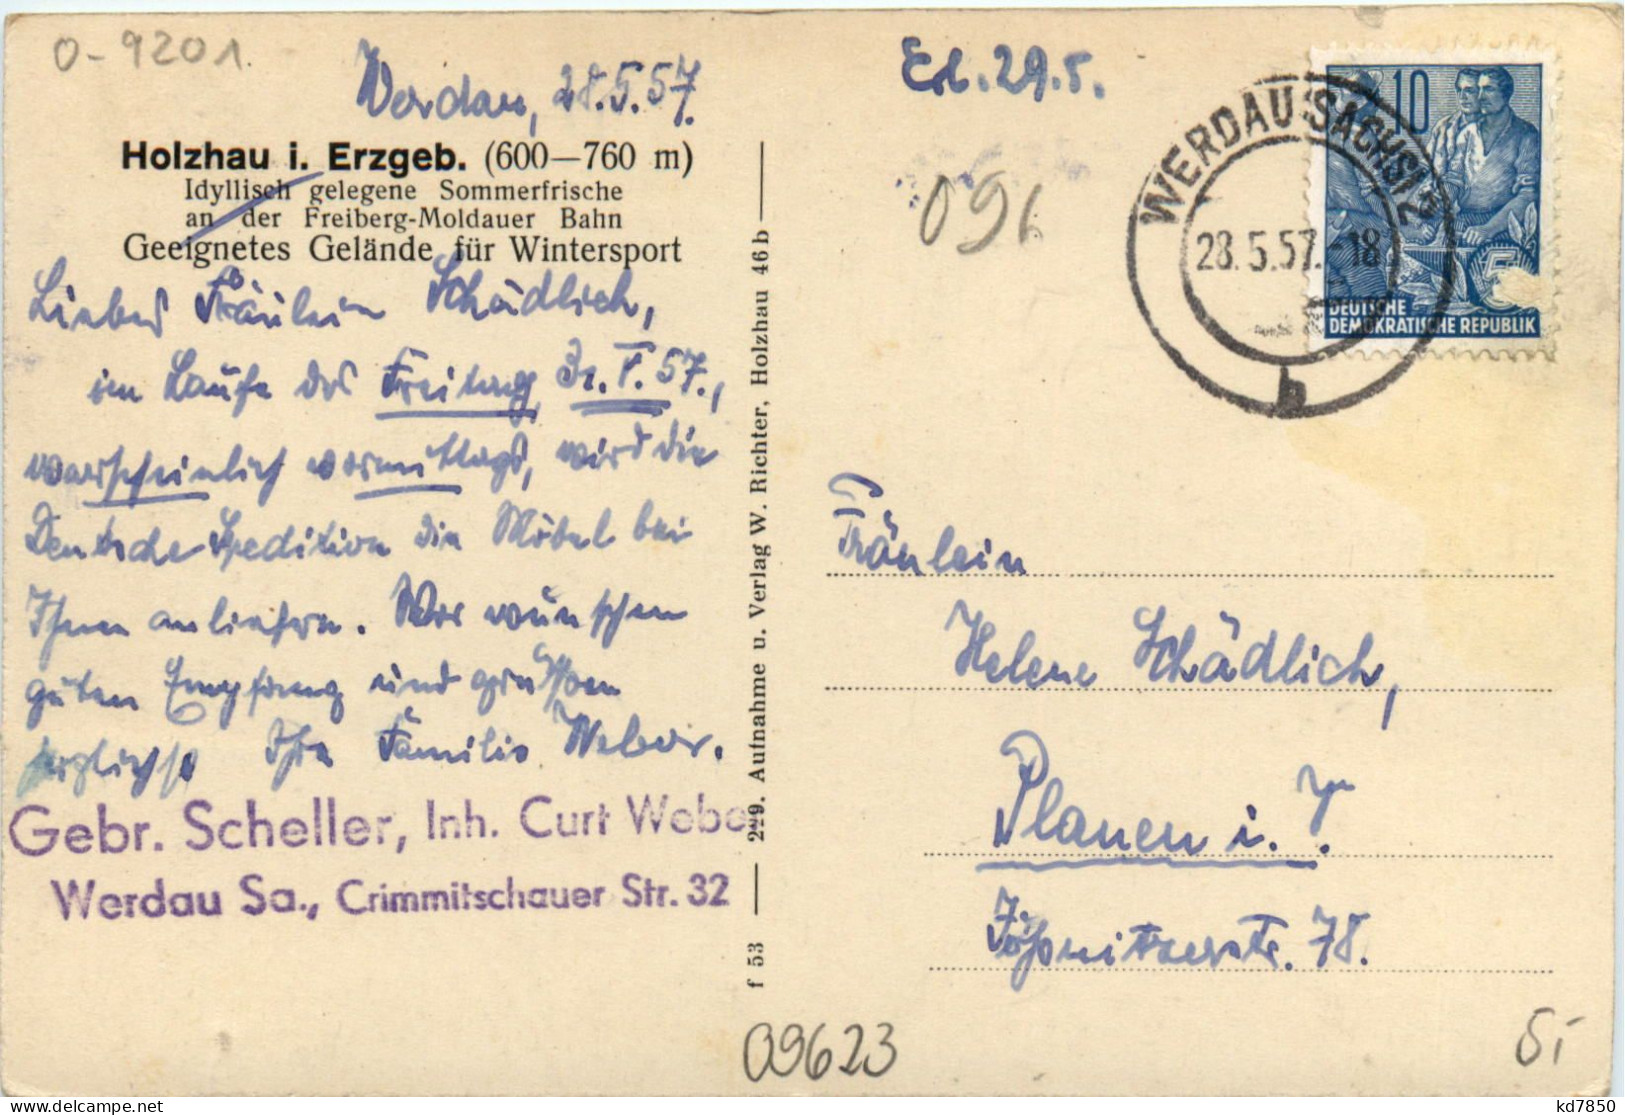 0-9201.
Werdau, 28.5.57.
Holzhau i. Erzgeb. (600—760 m)
Idyllisch gelegene Sommerfrische
an der Freiberg-Moldauer Bahn
Geeignetes Gelände für Wintersport
Liebes Fräulein Schädlich,
im Laufe des Freitag, 31. V. 57.,
warscheinlich vormittags, wird die
Deutsche Spedition die Möbel bei
Ihnen anliefern. Wir wünschen
guten Empfang und grüßen
herzlichst Ihre Familie Weber.
Gebr. Scheller, Inh. Curt Webe
Werdau Sa., Crimmitschauer Str. 32
f 53 — 229. Aufnahme u. Verlag W. Richter, Holzhau 46 b
Erl. 29.5.
096
WERDAU (SACHS) 2
28.5.57.-18
b
10
5
DEUTSCHE
DEMOKRATISCHE REPUBLIK
Fräulein
Helene Schädlich,
Plauen i. V.
Jößnitzerstr. 78.
09623
5,-
kd7850